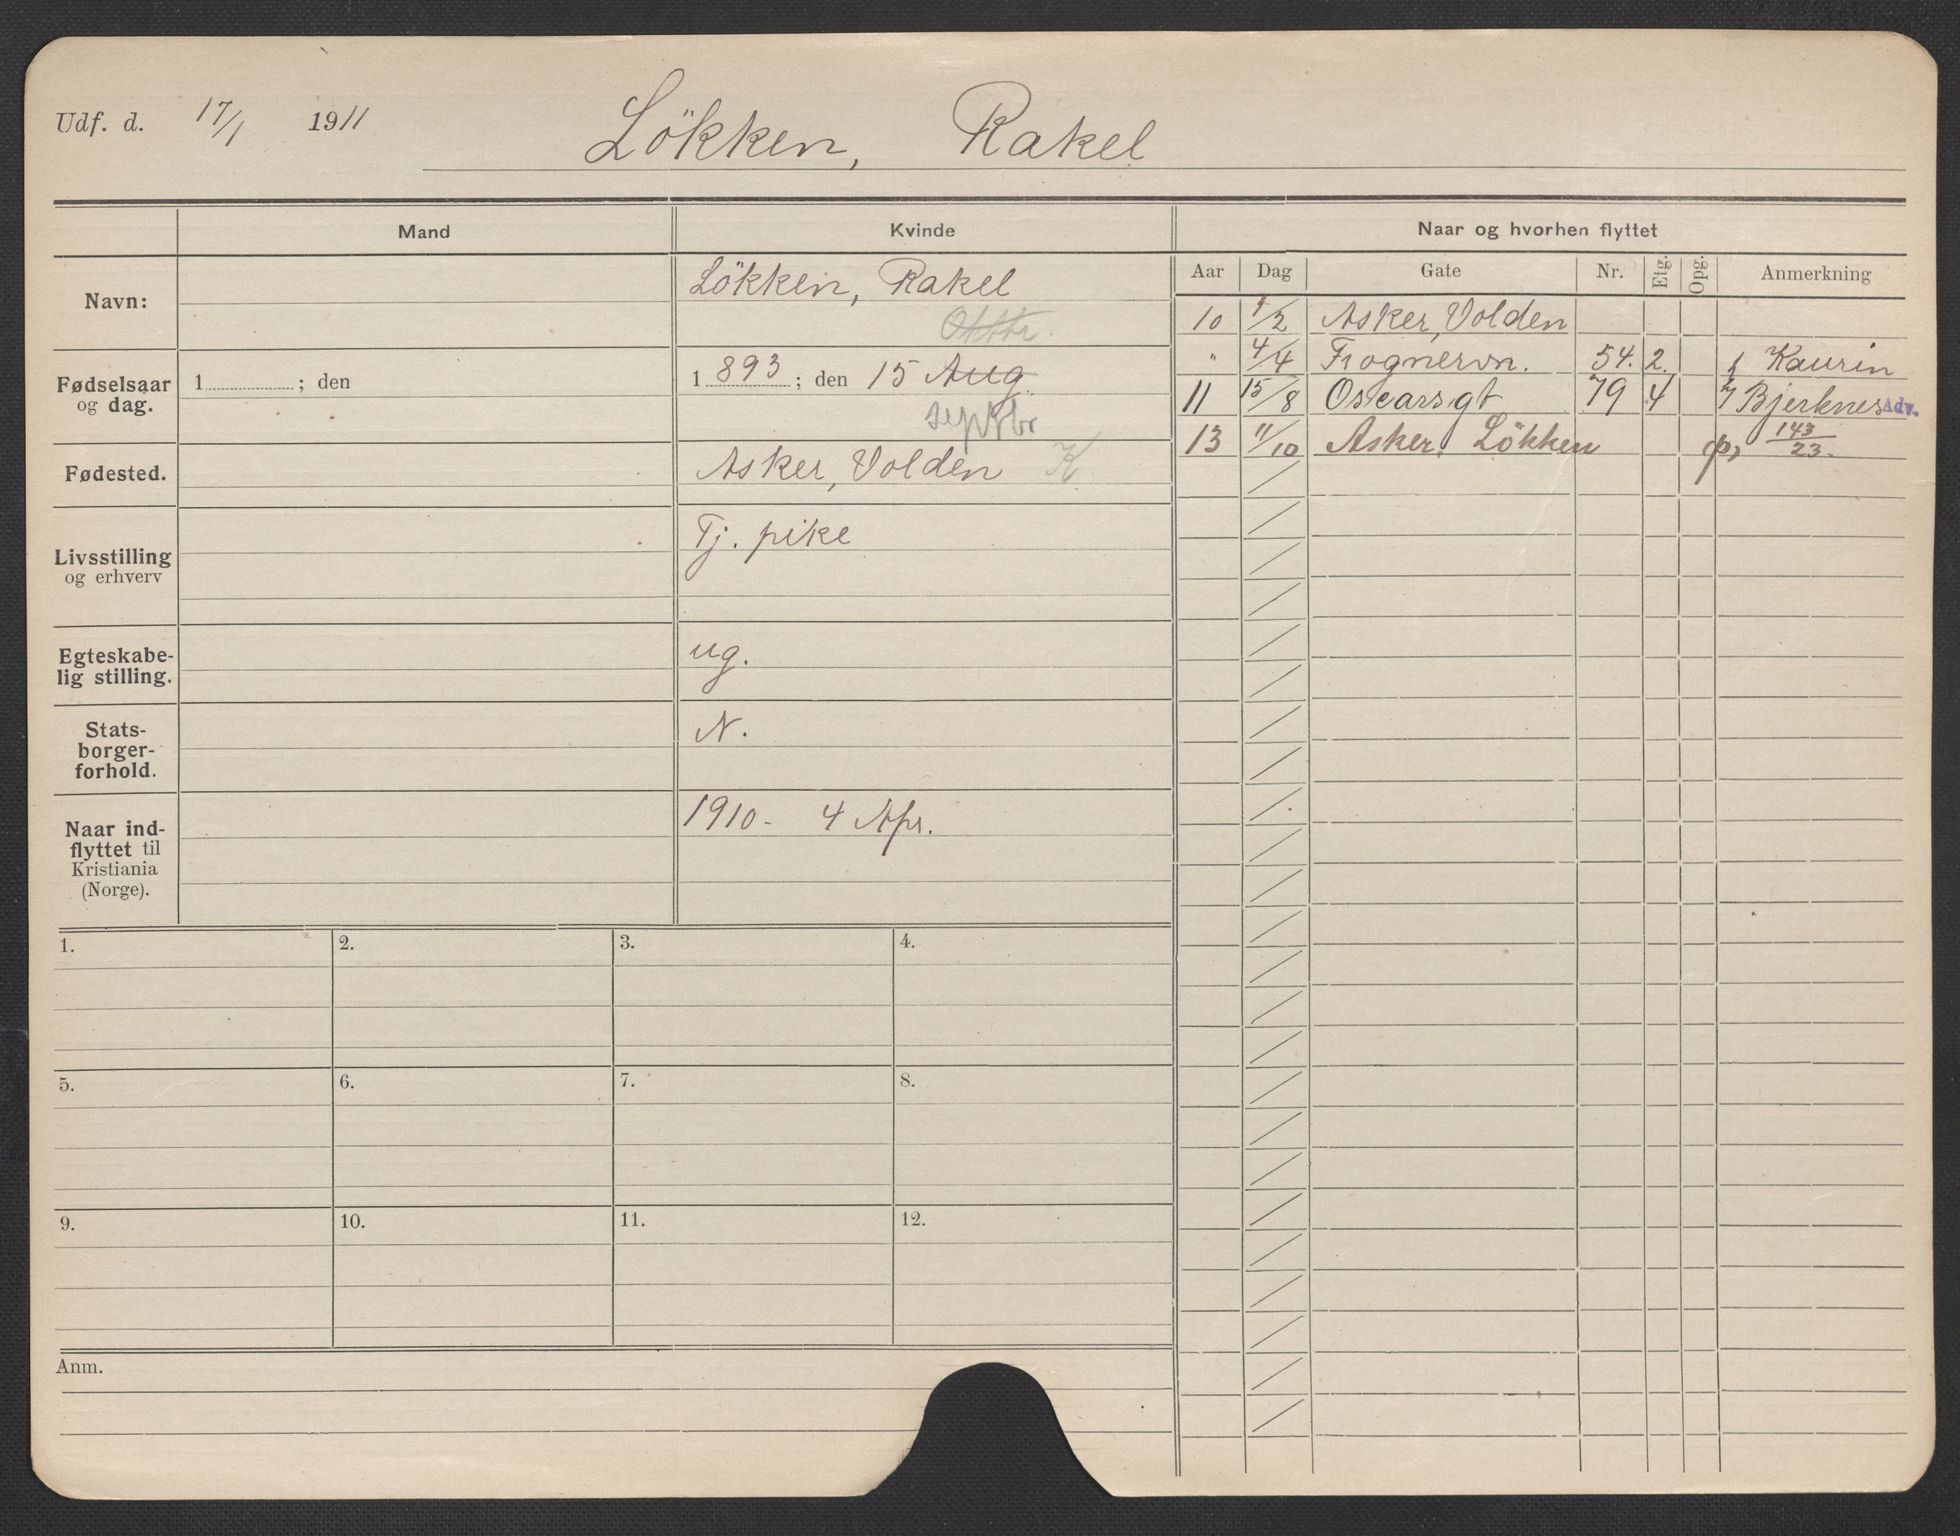 Udf. d. 17/1 1911
Lökken, Rakel
Mand
Kvinde
Naar og hvorhen flyttet
Navn:
Lökken, Rakel
Fødselsaar og dag.
1 ; den
1893 ; den 15 Aug
septbr
Fødested.
Asker, Volden K
Livsstilling og erhverv
Tj. pike
Egteskabe-
lig stilling.
ug.
Stats-
borger-
forhold.
N.
Naar ind-
flyttet til
Kristiania
(Norge).
1910 - 4 Apr.
Aar Dag Gate Nr. Etg. Opg. Anmerkning
10 1/2 Asker, Volden
" 4/4 Frognervn. 54. 2. Kaurin
11 15/8 Oscarsgt 79 4 Bjerknes Adv.
13 11/10 Asker, Lökken 143/23.
1. 2. 3. 4.
5. 6. 7. 8.
9. 10. 11. 12.
Anm.